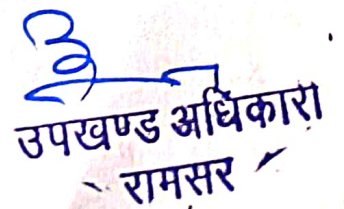 उपखण्ड अधिकारी
रामसर